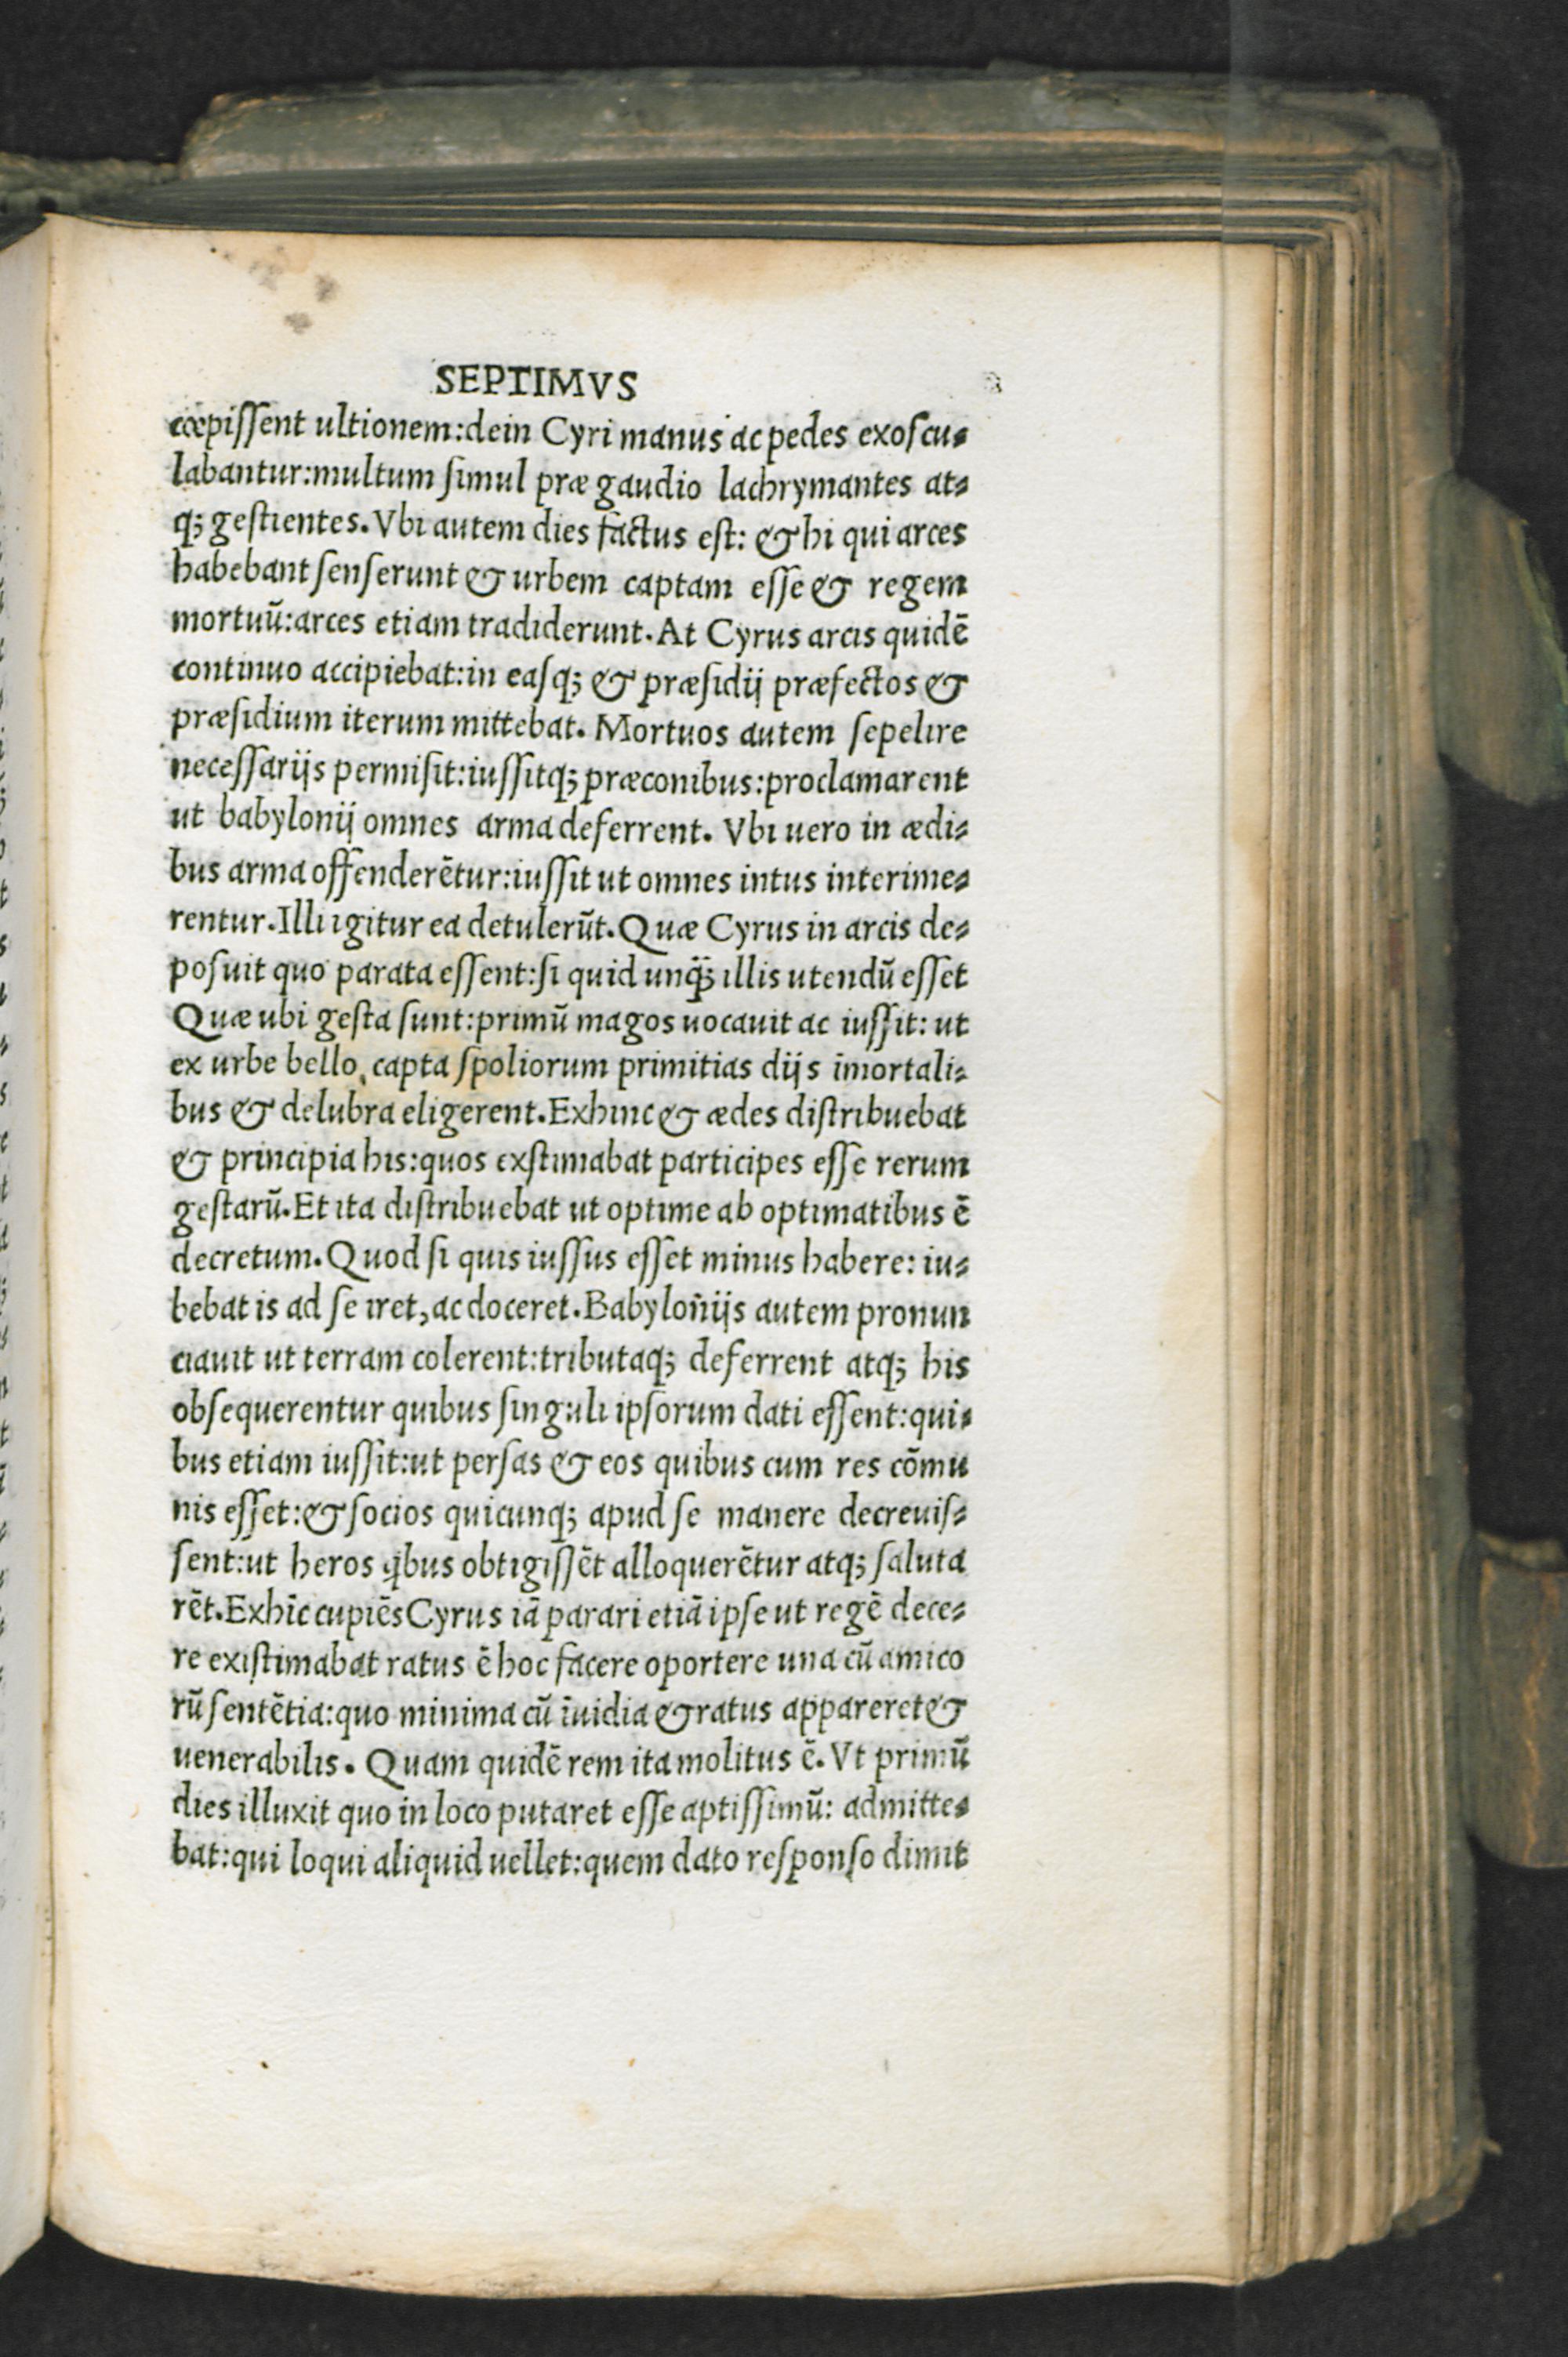 SEPTIMVS
cœpiſſent ultionem:dein Cyri manus ac pedes exoſcu-
labantur:multum ſimul præ gaudio lachrymantes at-
q; geſtientes. Vbi autem dies factus eſt: & hi qui arces
habebant ſenſerunt & urbem captam eſſe & regem
mortuū:arces etiam tradiderunt. At Cyrus arcis quidē
continuo accipiebat:in eaſq; & præſidij præfectos &
præſidium iterum mittebat. Mortuos autem ſepelire
neceſſarijs permiſit:iuſſitq; præconibus:proclamarent
ut babylonij omnes arma deferrent. Vbi uero in ædi-
bus arma offenderētur:iuſſit ut omnes intus interime-
rentur. Illi igitur ea detulerūt. Quæ Cyrus in arcis de-
poſuit quo parata eſſent:ſi quid unq̄; illis utendū eſſet
Quæ ubi geſta ſunt:primū magos uocauit ac iuſſit: ut
ex urbe bello, capta ſpoliorum primitias dijs īmortali-
bus & delubra eligerent. Exhinc & ædes diſtribuebat
& principia his:quos exſtimabat participes eſſe rerum
geſtarū. Et ita diſtribuebat ut optime ab optimatibus ē
decretum. Quod ſi quis iuſſus eſſet minus habere: iu-
bebat is ad ſe iret, ac doceret. Babylonijs autem pronun
ciauit ut terram colerent:tributaq; deferrent atq; his
obſequerentur quibus ſinguli ipſorum dati eſſent:qui-
bus etiam iuſſit:ut perſas & eos quibus cum res cōmu
nis eſſet:& ſocios quicunq; apud ſe manere decreuiſ-
ſent:ut heros ꝗbus obtigiſſēt alloquerētur atq; ſaluta
rēt. Exhīc cupiēs Cyrus iā parari etiā ipſe ut regē dece-
re exiſtimabat ratus ē hoc facere oportere una cū amico
rū ſentētia:quo minima cū īuidia & ratus appareret &
uenerabilis. Quam quidē rem ita molitus ē. Vt primū
dies illuxit quo in loco putaret eſſe aptiſſimū: admitte-
bat:qui loqui aliquid uellet:quem dato reſponſo dimit